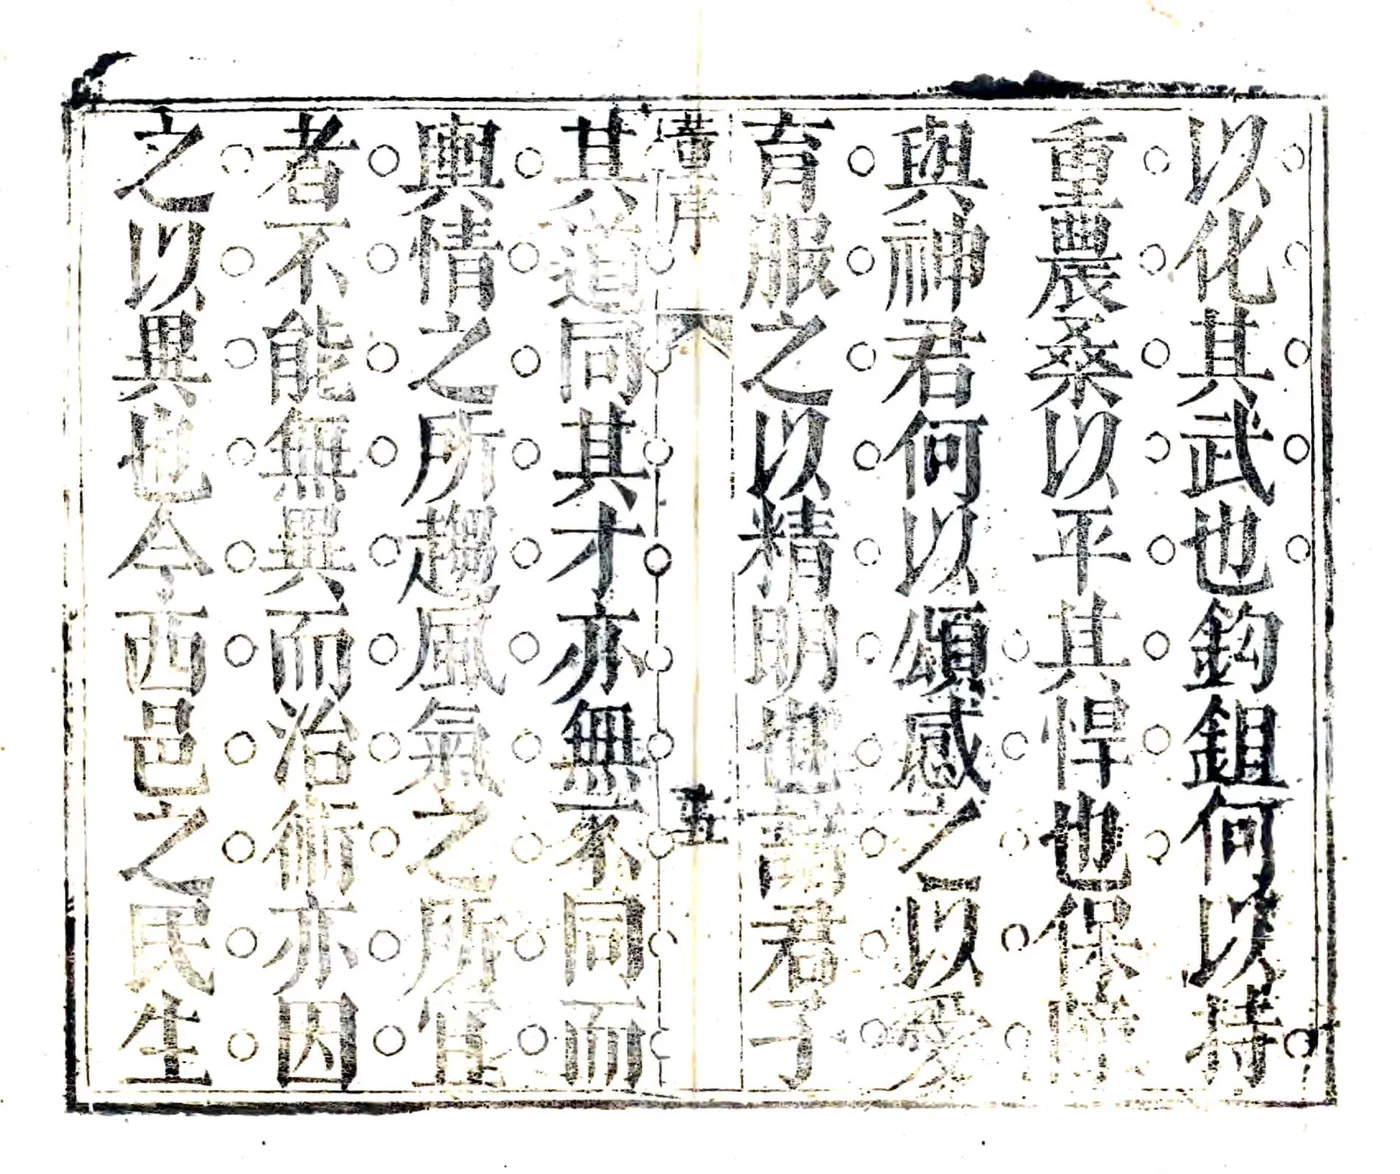 以化其武也鈎鉏何以持
重農桑以平其悍也保障
與神君何以頌感之以愛
育服之以精明也諸君子
董序
五
其道同其才亦無不同而
輿情之所趨風氣之所宜
者不能無異而治術亦因
之以異也今西邑之民生